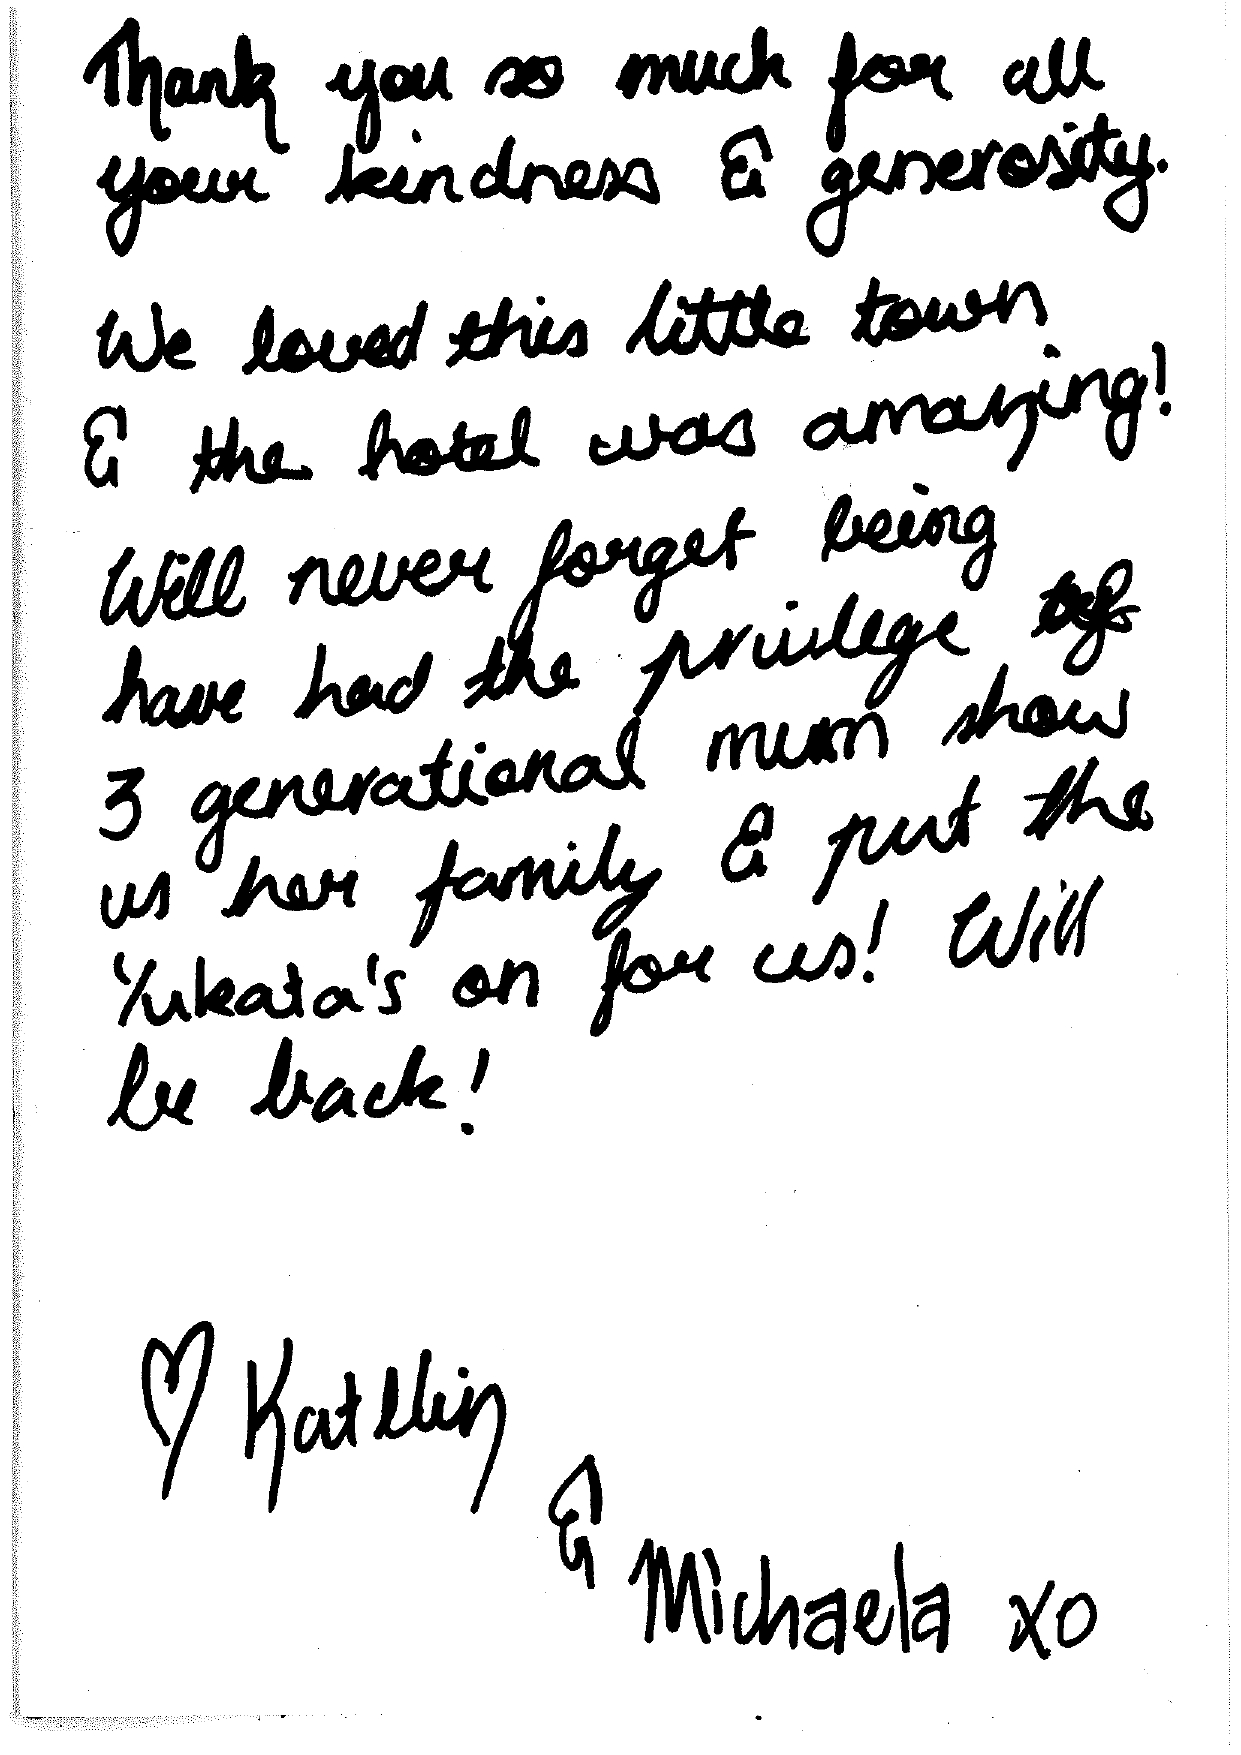 Thank you so much for all
your kindness & generosity.
We loved this little town
& the hotel was amazing!
Will never forget being
have had the privilege of
3 generational mum show
us her family & put the
Yukata's on for us! Will
be back!
♡ Katllin
&
Michaela xo